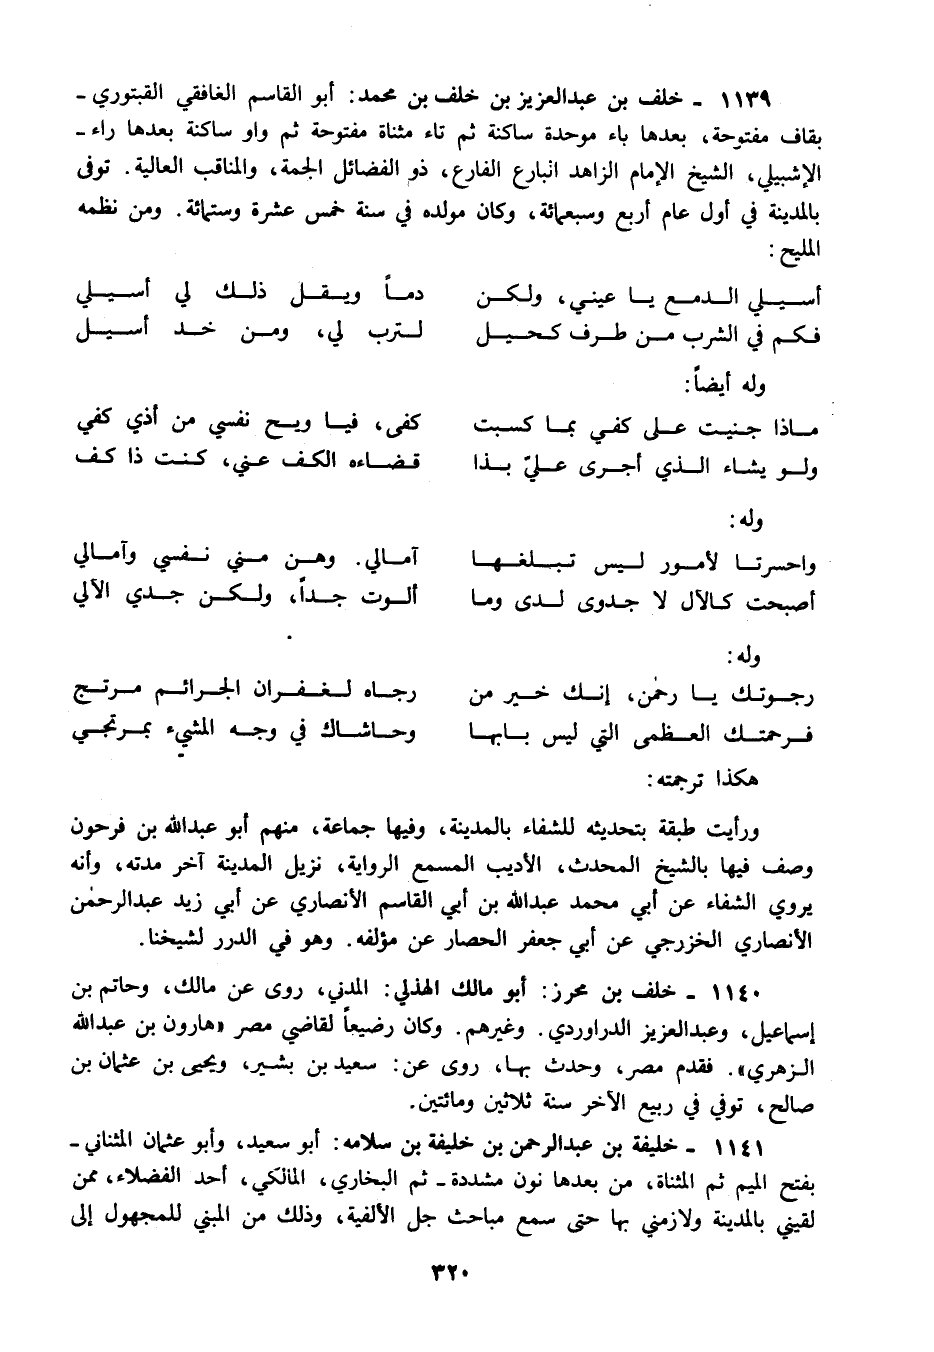 ١١٣٩ ـ خلف بن عبدالعزيز بن خلف بن محمد: أبو القاسم الغافقي القبتوري ـ
بقاف مفتوحة، بعدها باء موحدة ساكنة ثم تاء مثناة مفتوحة ثم واو ساكنة بعدها راء ـ
الإشبيلي، الشيخ الإمام الزاهد البارع الفارع، ذو الفضائل الجمة، والمناقب العالية. توفى
بالمدينة في أول عام أربع وسبعمائة، وكان مولده في سنة خمس عشرة وستمائة. ومن نظمه
المليح:
أسيلي الدمع يا عيني، ولكن دماً ويقل ذلك لي أسيلي
فكم في الشرب من طرف كحيل لترب لي، ومن خد أسيل
وله أيضاً:
ماذا جنيت على كفي بما كسبت كفى، فيا ويح نفسي من أذي كفي
ولو يشاء الذي أجرى عليّ بذا قضاءه الكف عني، كنت ذا كف
وله:
واحسرتا لأمور ليس تبلغها آمالي. وهن مني نفسي وآمالي
أصبحت كالآل لا جدوى لدى وما ألوت جداً، ولكن جدي الآلي
وله:
رجوتك يا رحمن، إنك خير من رجاه لغفران الجرائم مرتج
فرحمتك العظمى التي ليس بابها وحاشاك في وجه المشيء بمرتجي
هكذا ترجمته:
ورأيت طبقة بتحديثه للشفاء بالمدينة، وفيها جماعة، منهم أبو عبدالله بن فرحون
وصف فيها بالشيخ المحدث، الأديب المسمع الرواية، نزيل المدينة آخر مدته، وأنه
يروي الشفاء عن أبي محمد عبدالله بن أبي القاسم الأنصاري عن أبي زيد عبدالرحمٰن
الأنصاري الخزرجي عن أبي جعفر الحصار عن مؤلفه. وهو في الدرر لشيخنا.
١١٤٠ ـ خلف بن محرز: أبو مالك الهذلي: المدني، روى عن مالك، وحاتم بن
إسماعيل، وعبدالعزيز الدراوردي. وغيرهم. وكان رضيعاً لقاضي مصر «هارون بن عبدالله
الزهري». فقدم مصر، وحدث بها، روى عن: سعيد بن بشير، ويحيى بن عثمان بن
صالح، توفي في ربيع الآخر سنة ثلاثين ومائتين.
١١٤١ ـ خليفة بن عبدالرحمن بن خليفة بن سلامه: أبو سعيد، وأبو عثمان المثناني ـ
بفتح الميم ثم المثناة، من بعدها نون مشددة ـ ثم البخاري، المالكي، أحد الفضلاء، ممن
لقيني بالمدينة ولازمني بها حتى سمع مباحث جل الألفية، وذلك من المبني للمجهول إلى
٣٢٠